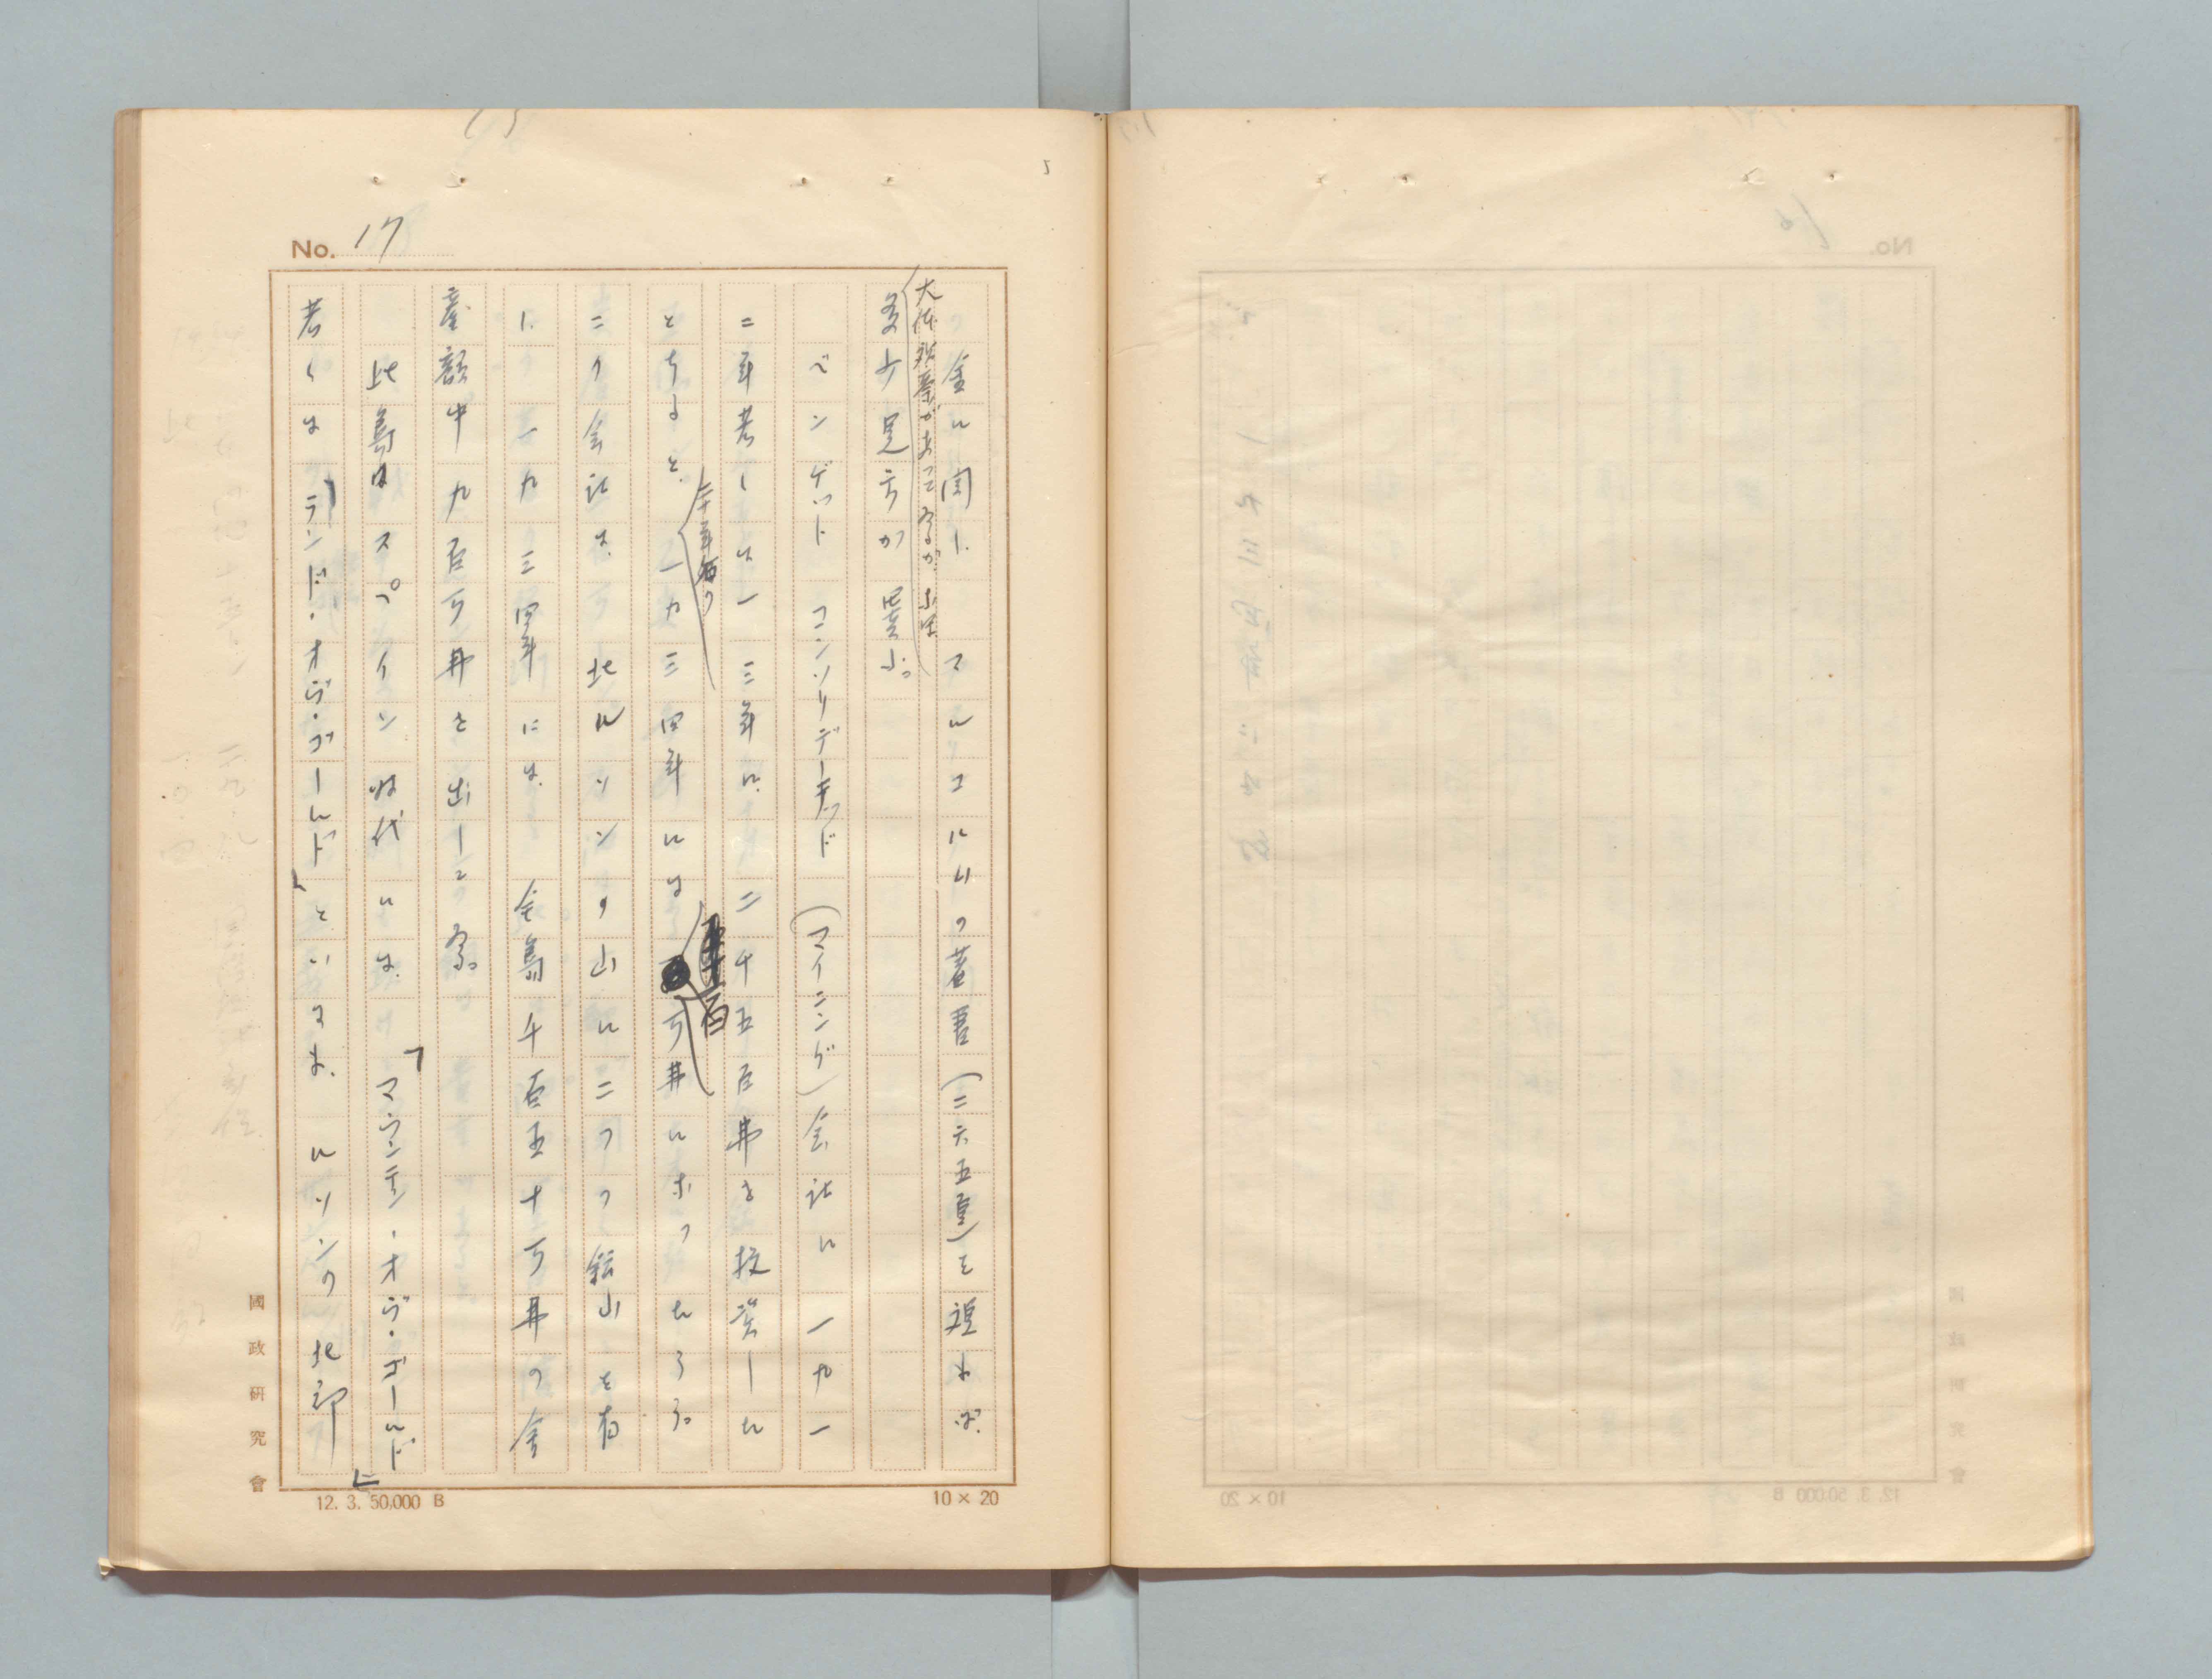 No. 17
金に関し、マルコルムの著書(二六五頁)を視れば、
大体符合があってゐるが、小生
多少見方が異ふ。
ベンゲット コンソリデーテッド(マイニング)会社に一九一
二年若しくは一三年に、二千五百弗を投資した
とすると、一九三四年には
千百
万弗になつたらう。
この会社は、北ルソンの山に二つの鉱山を有
し、一九三四年には、全島千百五十万弗の金
産額中九百万弗を出してゐる。
此島はスペイン時代には、「マウンテン・オヴ・ゴールド」
若くは「ランド・オヴ・ゴールド」といはれ、ルソンの北部
國政研究會
12. 3. 50,000 B
10 × 20